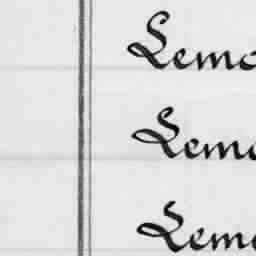 Lemo
Lemo
Leme